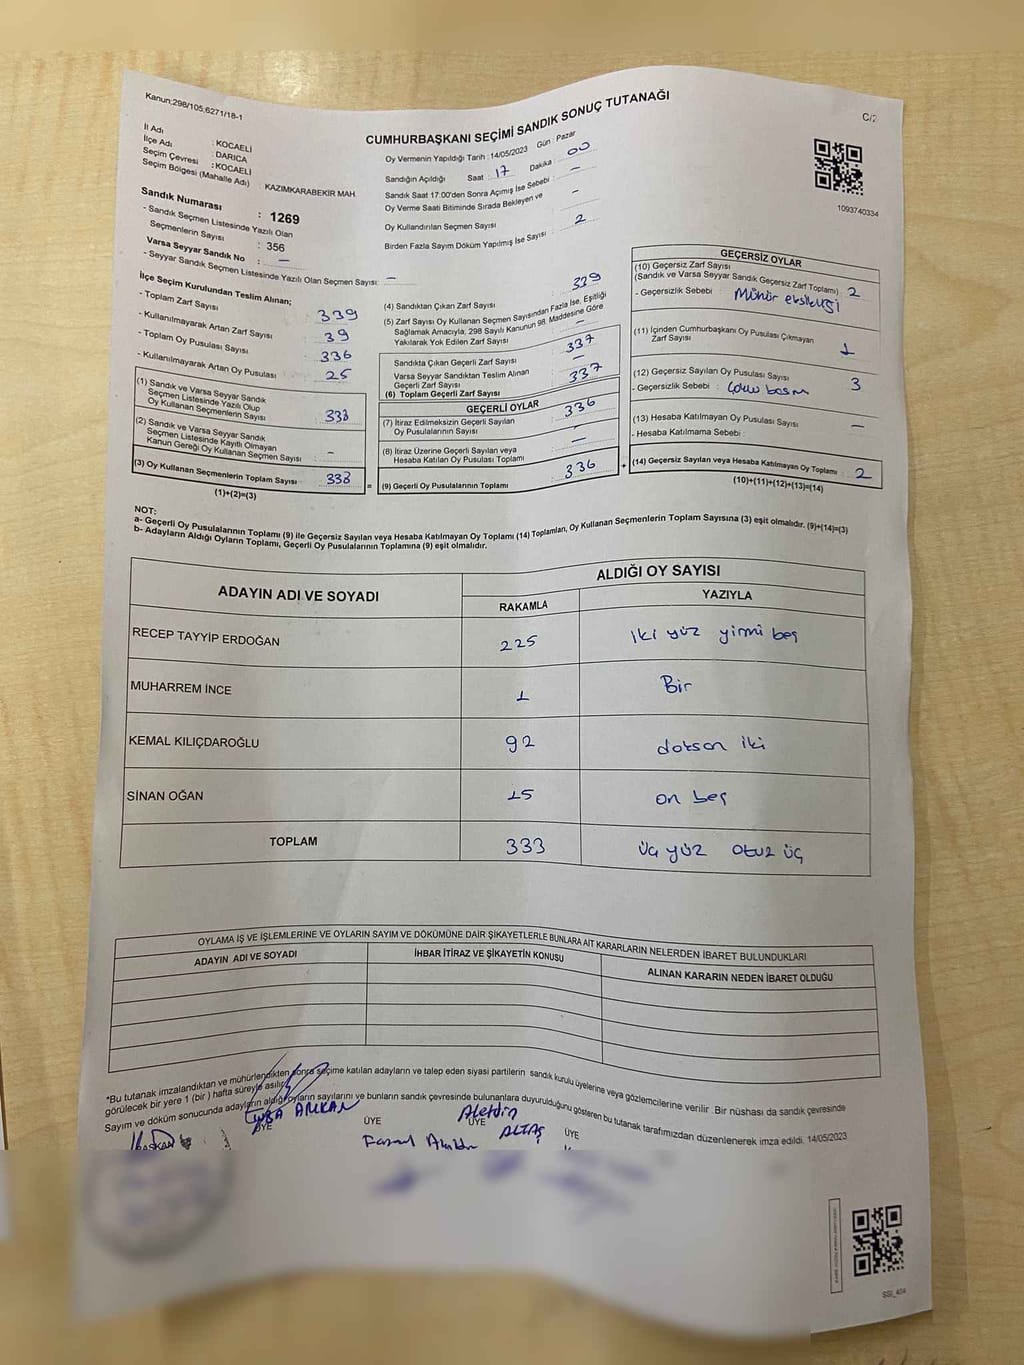 Kanun;298/105,6271/18-1
C/2
CUMHURBAŞKANI SEÇİMİ SANDIK SONUÇ TUTANAĞI
İl Adı : KOCAELİ
İlçe Adı : DARICA
Seçim Çevresi : KOCAELİ
Seçim Bölgesi (Mahalle Adı) KAZIMKARABEKİR MAH.
Sandık Numarası : 1269
- Sandık Seçmen Listesinde Yazılı Olan
Seçmenlerin Sayısı : 356
Varsa Seyyar Sandık No : -
- Seyyar Sandık Seçmen Listesinde Yazılı Olan Seçmen Sayısı: -
Oy Vermenin Yapıldığı Tarih : 14/05/2023 Gün : Pazar
Sandığın Açıldığı Saat : 17 Dakika : 00
Sandık Saat 17.00'den Sonra Açımış İse Sebebi : -
Oy Verme Saati Bitiminde Sırada Bekleyen ve -
Oy Kullandırılan Seçmen Sayısı
Birden Fazla Sayım Döküm Yapılmış İse Sayısı : 2
1093740334
İlçe Seçim Kurulundan Teslim Alınan;
- Toplam Zarf Sayısı : 339
- Kullanılmayarak Artan Zarf Sayısı : 39
- Toplam Oy Pusulası Sayısı : 336
- Kullanılmayarak Artan Oy Pusulası : 25
(1) Sandık ve Varsa Seyyar Sandık
Seçmen Listesinde Yazılı Olup
Oy Kullanan Seçmenlerin Sayısı : 338
(2) Sandık ve Varsa Seyyar Sandık
Seçmen Listesinde Kayıtlı Olmayan
Kanun Gereği Oy Kullanan Seçmen Sayısı : -
(3) Oy Kullanan Seçmenlerin Toplam Sayısı : 338
(1)+(2)=(3)
(4) Sandıktan Çıkan Zarf Sayısı : 339
(5) Zarf Sayısı Oy Kullanan Seçmen Sayısından Fazla İse, Eşitliği
Sağlamak Amacıyla, 298 Sayılı Kanunun 98. Maddesine Göre
Yakılarak Yok Edilen Zarf Sayısı : -
Sandıkta Çıkan Geçerli Zarf Sayısı : 337
Varsa Seyyar Sandıktan Teslim Alınan
Geçerli Zarf Sayısı : -
(6) Toplam Geçerli Zarf Sayısı : 337
GEÇERLİ OYLAR
(7) İtiraz Edilmeksizin Geçerli Sayılan
Oy Pusulalarının Sayısı : 336
(8) İtiraz Üzerine Geçerli Sayılan veya
Hesaba Katılan Oy Pusulası Toplamı : -
(9) Geçerli Oy Pusulalarının Toplamı : 336
GEÇERSİZ OYLAR
(10) Geçersiz Zarf Sayısı
(Sandık ve Varsa Seyyar Sandık Geçersiz Zarf Toplamı) : 2
- Geçersizlik Sebebi : Mühür eksikliği
(11) İçinden Cumhurbaşkanı Oy Pusulası Çıkmayan
Zarf Sayısı : 1
(12) Geçersiz Sayılan Oy Pusulası Sayısı : 3
- Geçersizlik Sebebi :
(13) Hesaba Katılmayan Oy Pusulası Sayısı : -
- Hesaba Katılmama Sebebi :
(14) Geçersiz Sayılan veya Hesaba Katılmayan Oy Toplamı : 2
(10)+(11)+(12)+(13)=(14)
NOT:
a- Geçerli Oy Pusulalarının Toplamı (9) ile Geçersiz Sayılan veya Hesaba Katılmayan Oy Toplamı (14) Toplamları, Oy Kullanan Seçmenlerin Toplam Sayısına (3) eşit olmalıdır. (9)+(14)=(3)
b- Adayların Aldığı Oyların Toplamı, Geçerli Oy Pusulalarının Toplamına (9) eşit olmalıdır.
ADAYIN ADI VE SOYADI ALDIĞI OY SAYISI
RAKAMLA YAZIYLA
RECEP TAYYİP ERDOĞAN 225 iki yüz yirmi beş
MUHARREM İNCE 1 Bir
KEMAL KILIÇDAROĞLU 92 doksan iki
SİNAN OĞAN 15 on beş
TOPLAM 333 üç yüz otuz üç
OYLAMA İŞ VE İŞLEMLERİNE VE OYLARIN SAYIM VE DÖKÜMÜNE DAİR ŞİKAYETLERLE BUNLARA AİT KARARLARIN NELERDEN İBARET BULUNDUKLARI
ADAYIN ADI VE SOYADI İHBAR İTİRAZ VE ŞİKAYETİN KONUSU ALINAN KARARIN NEDEN İBARET OLDUĞU
*Bu tutanak imzalandıktan ve mühürlendikten sonra seçime katılan adayların ve talep eden siyasi partilerin sandık kurulu üyelerine veya gözlemcilerine verilir. Bir nüshası da sandık çevresinde
görülecek bir yere 1 (bir) hafta süreyle asılır.
Sayım ve döküm sonucunda adayların aldığı oyların sayılarını ve bunların sandık çevresinde bulunanlara duyurulduğunu gösteren bu tutanak tarafımızdan düzenlenerek imza edildi. 14/05/2023
BAŞKAN ÜYE ÜYE ÜYE ÜYE
ARIKAN
ALTAŞ
SSI_404